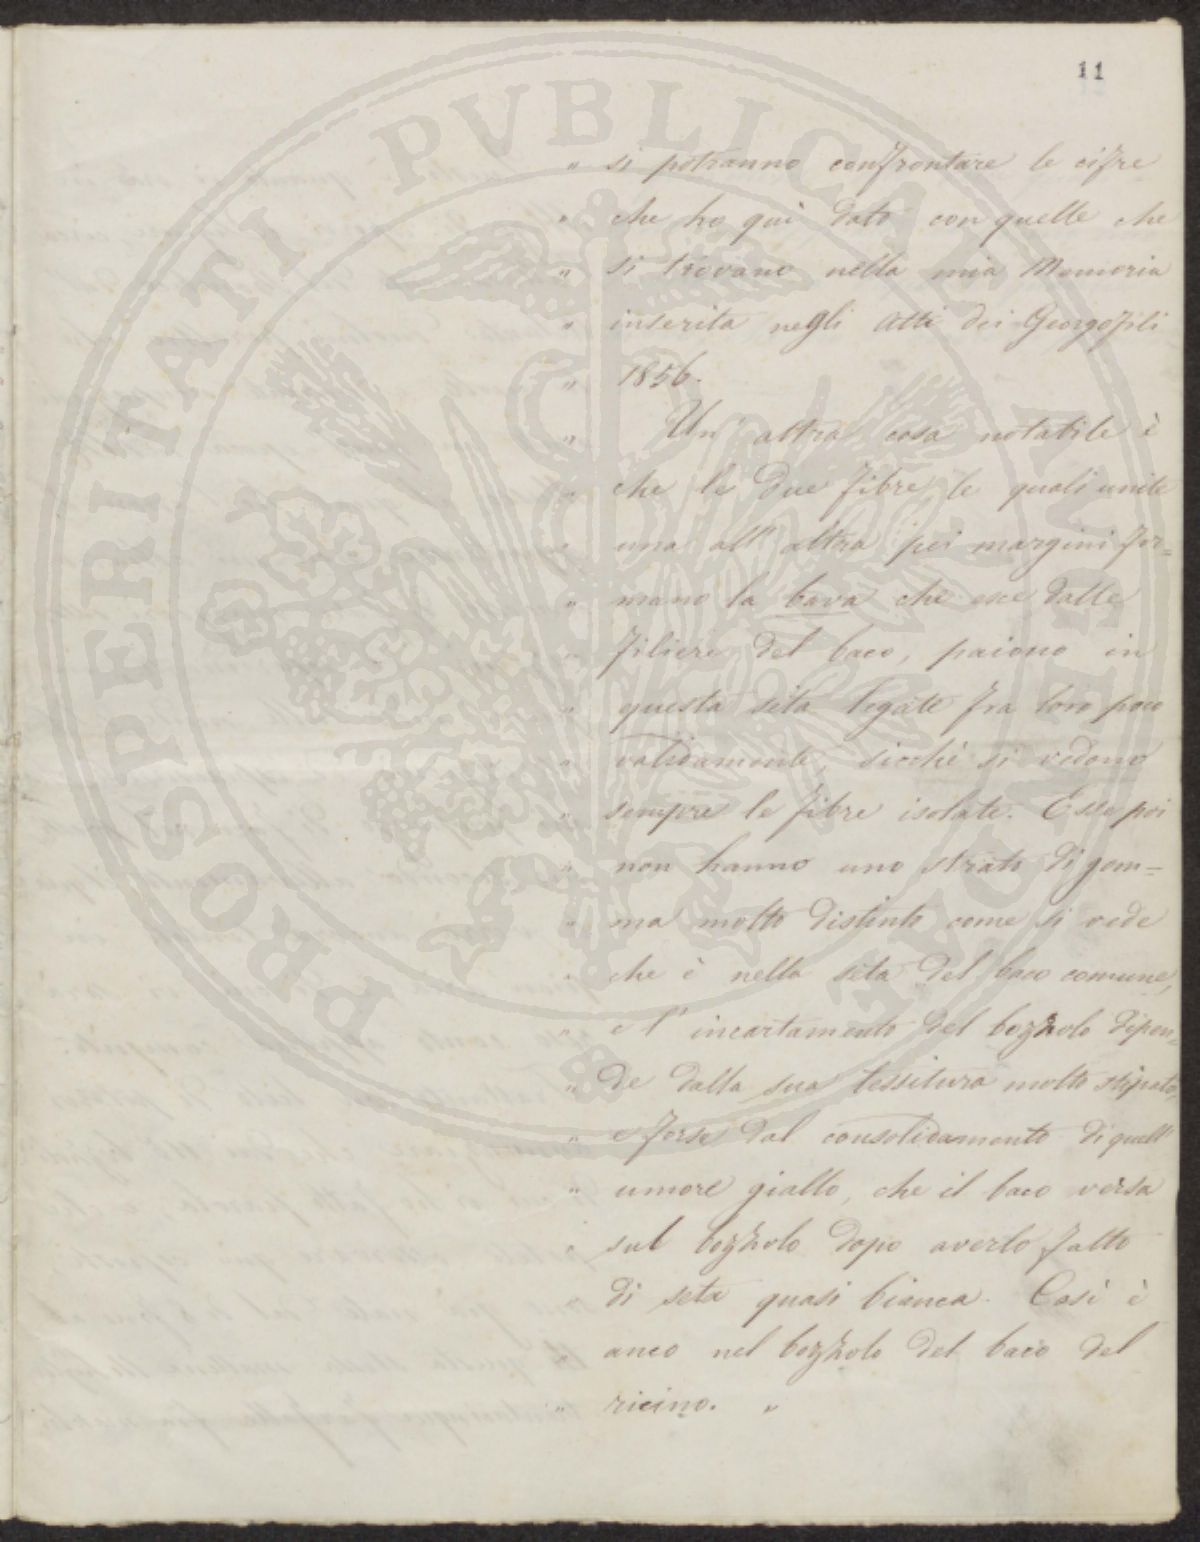 11
PROSPERITATI PVBLICAE AVGENDAE
" si potranno confrontare le cifre
" che ho quì dato con quelle che
" si trovano nella mia Memoria
" inserita negli Atti dei Georgofili
" 1856.
" Un' altra cosa notabile è
" che le due fibre, le quali unite
" una all' altra pei margini for=
" mano la bava che esce dalle
" filiere del baco, paiono in
" questa seta legate fra loro poco
" validamente, sicchè si vedono
" sempre le fibre isolate. Esse poi
" non hanno uno strato di gom=
" ma molto distinto come si vede
" che è nella seta del baco comune,
" e l' incartamento del bozzolo dipen=
" de dalla sua tessitura molto stipata,
" e forse dal consolidamento di quell'
" umore giallo, che il baco versa
" sul bozzolo dopo averlo fatto
" di seta quasi bianca. Così è
" anco nel bozzolo del baco del
" ricino. "